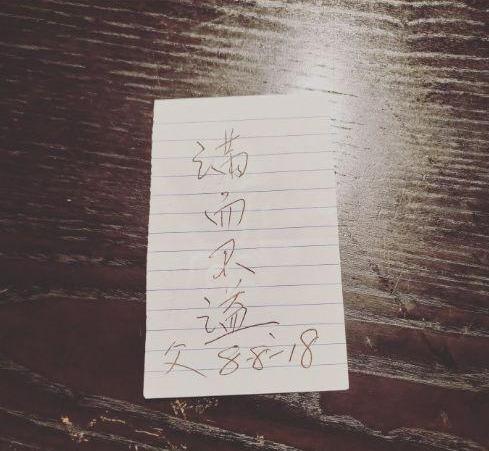 满而不溢
父 8-8-18